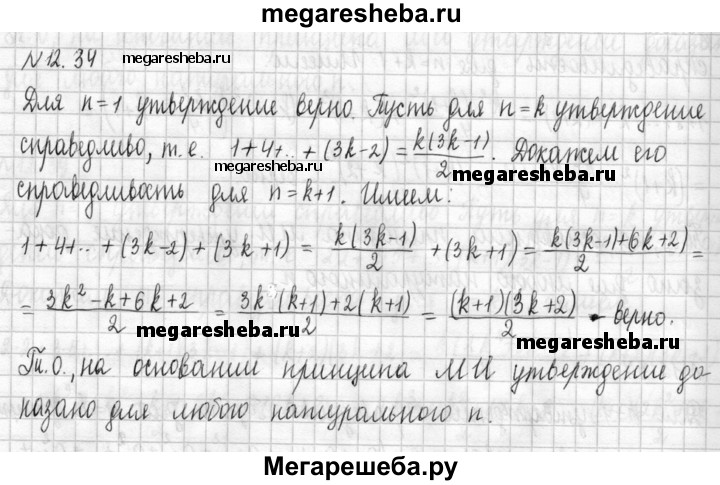 megaresheba.ru
N12.34 megaresheba.ru
Для n=1 утверждение верно. Пусть для n=k утверждение
справедливо, т.е. 1+4+..+(3k-2) = k(3k-1)/2. Докажем его
megaresheba.ru megaresheba.ru
справедливость для n=k+1. Имеем:
1+4+..+(3k-2)+(3k+1) = k(3k-1)/2 +(3k+1) = k(3k-1)+6k+2)/2 =
= 3k²-k+6k+2/2 = 3k(k+1)+2(k+1)/2 = (k+1)(3k+2)/2 - верно.
megaresheba.ru megaresheba.ru
Т.о., на основании принципа МИ утверждение до
казано для любого натурального n.
Мегарешеба.ру